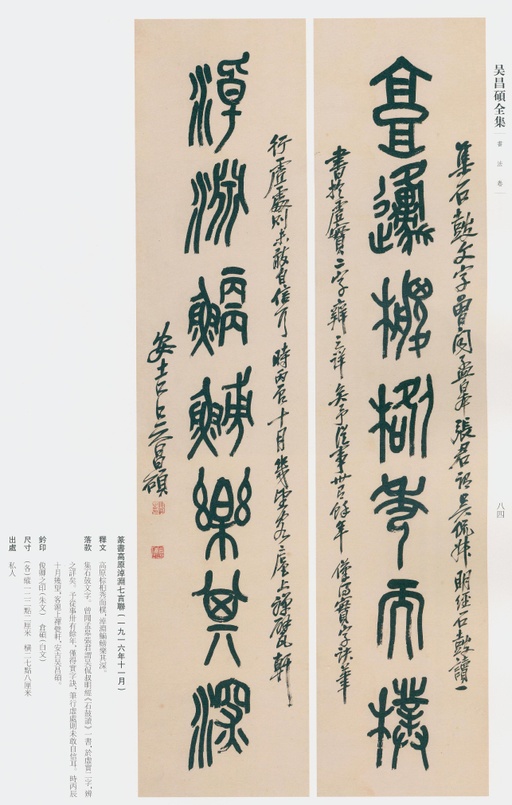 吴昌碩全集
書法卷
八四
集石鼓文字曾聞孟皋張君謂吳侃叔明經石鼓讀一
高原椶柏秀而樸
書於虛實二字辨之詳矣予從事卅有餘年僅得實字訣筆
行虛處則未敢自信耳時丙辰十月幾望客扈上禪甓軒
淖淵鯿鯆樂其深
安吉吳昌碩
篆書高原淖淵七言聯(一九一六年十一月)
釋文 高原棕柏秀而樸,淖淵鯿鯆樂其深。
落款 集石鼓文字。曾聞孟皋張君謂吳侃叔明經《石鼓讀》一書,於虛實二字,辨
之詳矣。予從事卅有餘年,僅得實字訣,筆行虛處則未敢自信耳。時丙辰
十月幾望,客扈上禪甓軒,安吉吳昌碩。
鈐印 俊卿之印(朱文) 倉碩(白文)
尺寸 (各)縱一二二點二厘米 橫二七點八厘米
出處 私人